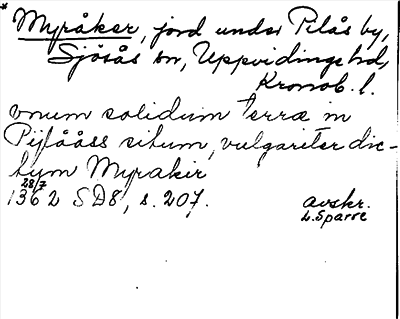 * Myråker, jord under Pilås by,
Sjösås sn, Uppvidinge hd,
Kronob. l.
vnum solidum terræ in
Pijlåååss situm, vulgariter dic-
tum Myrakir
28/7
1362 SD8, s. 207.
avskr.
L. Sparre